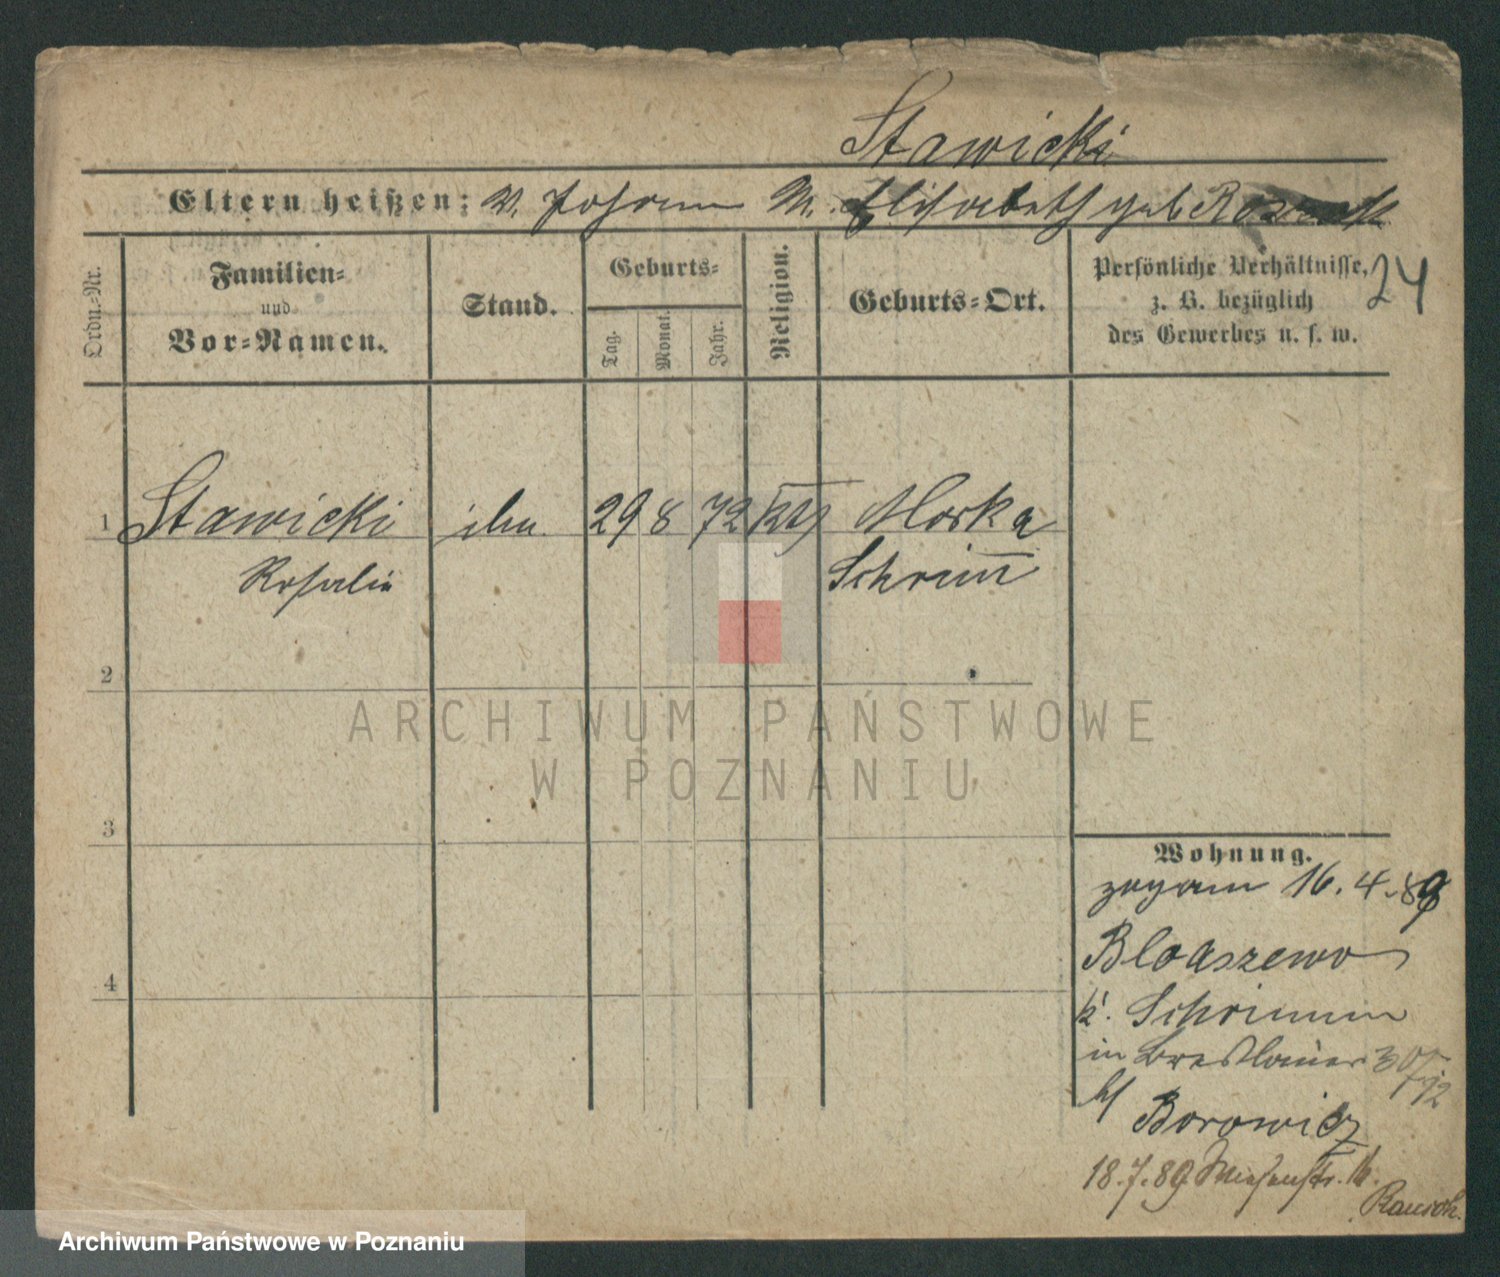 Stawicki
Eltern heißen: V. Johann M. Elisabeth geb
Ordn.-Nr.
Familien-
und
Vor-Namen.
Stand.
Geburts-
Tag.
Monat.
Jahr.
Religion.
Geburts-Ort.
Persönliche Verhältnisse,
z. B. bezüglich
des Gewerbes u. s. w.
24
1 Stawicki 29 8 72 kth Morka
Rosalie Schrimm
2
3
4
ARCHIWUM PAŃSTWOWE
W POZNANIU
Wohnung.
zugom 16.4.89
Bloaszewo
k. Schrimm
in Breslauer 30/
b/ Borowicz
18.7.89 Wiesenstr. 16.
Rausch.
Archiwum Państwowe w Poznaniu